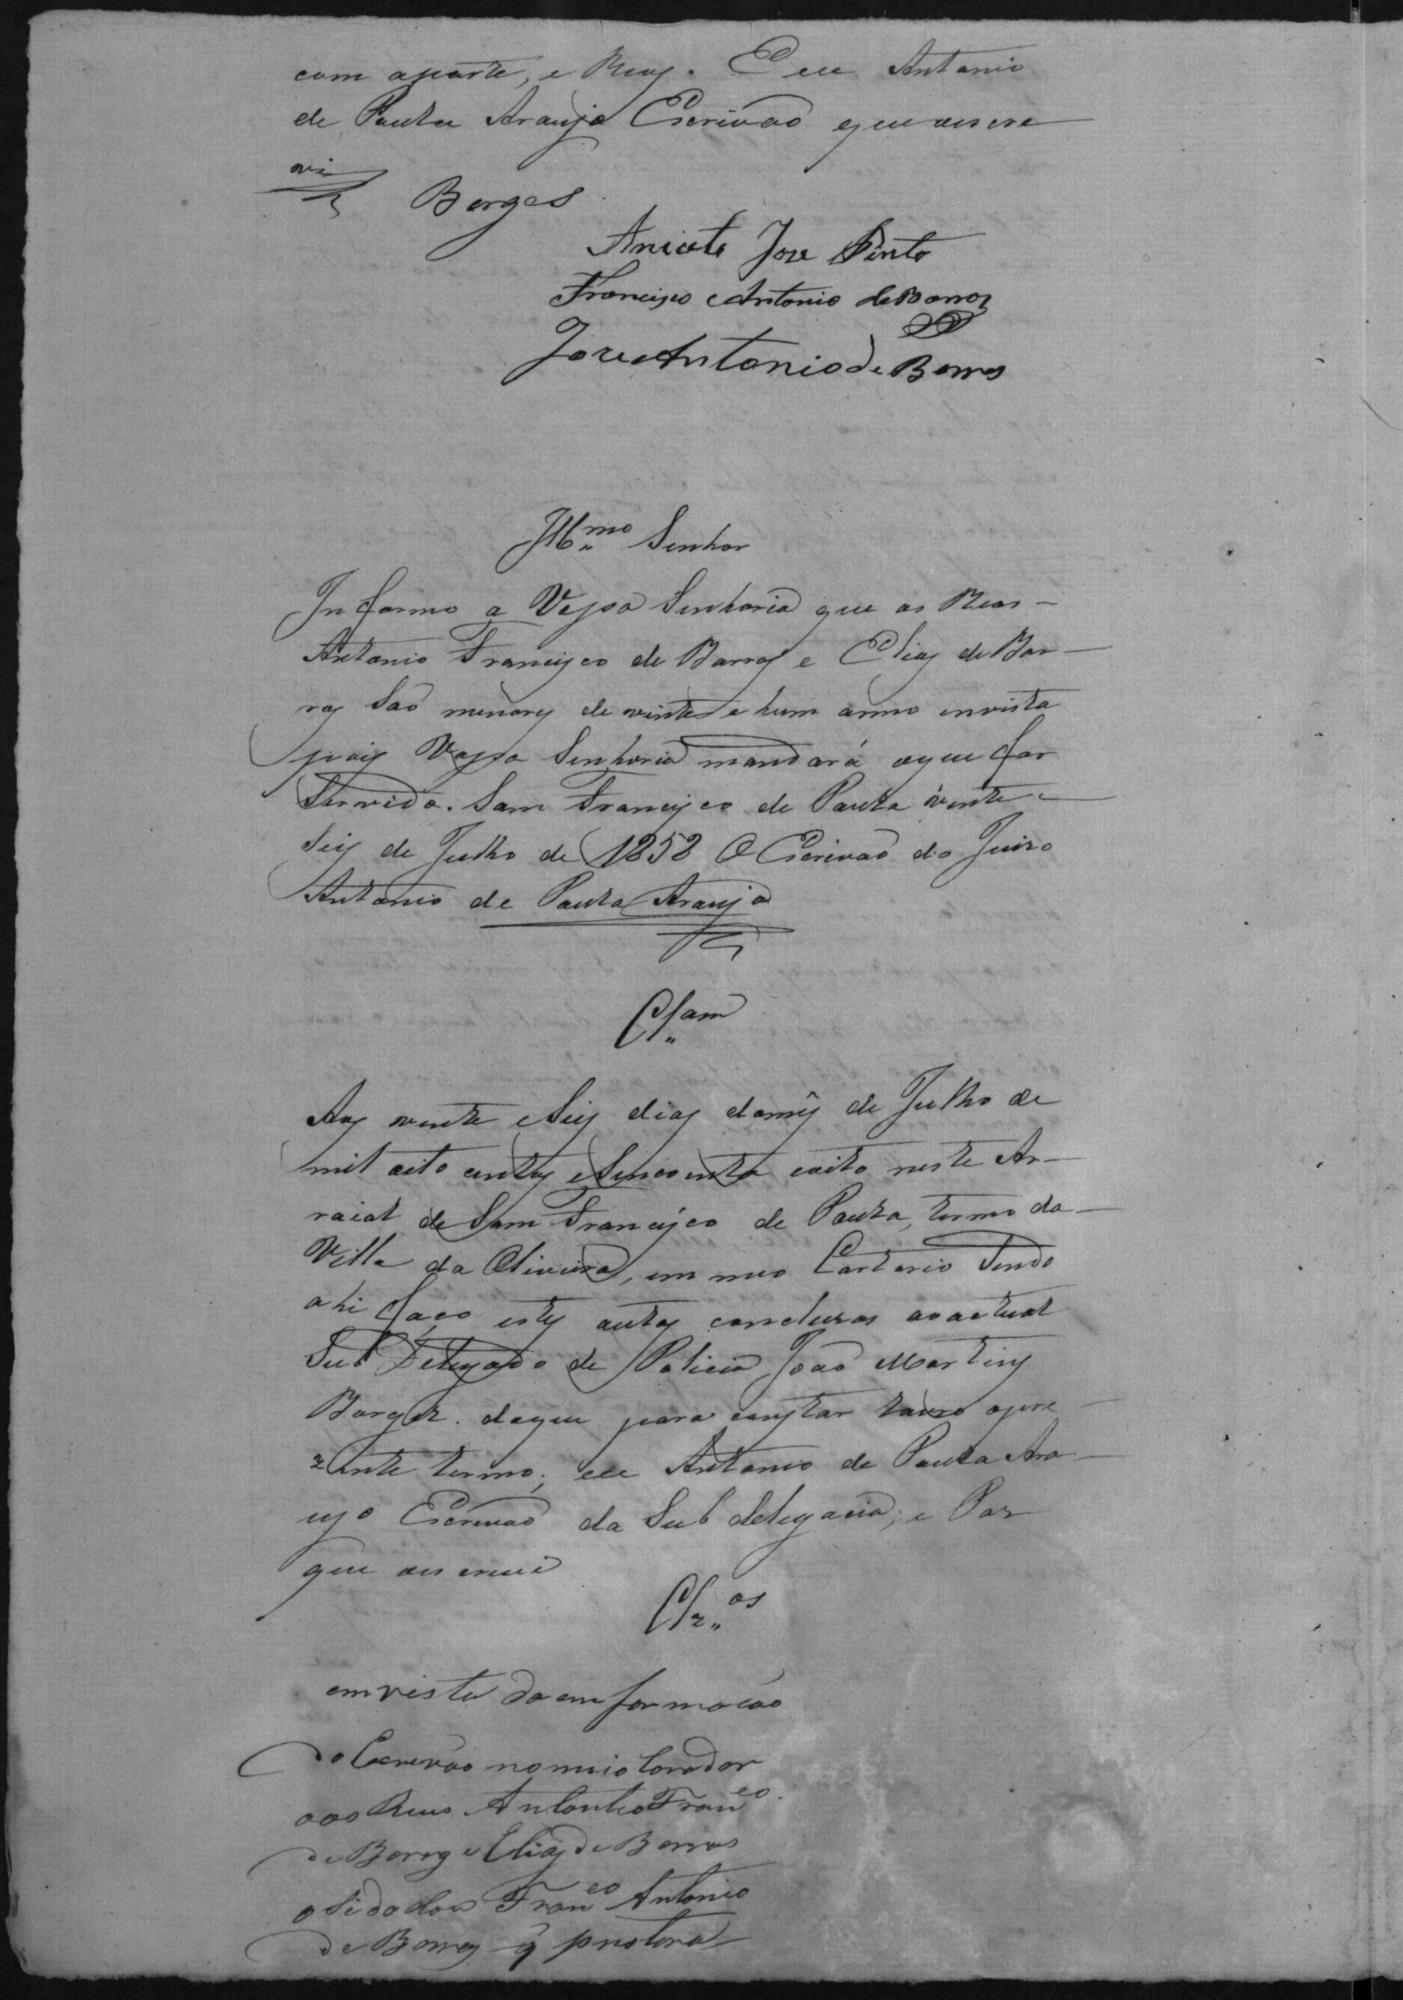 com aparte, e Reos. E eu Antonio
de Paula Araujo Escrivaõ que o escre
vi
Borges
Aniceto Joze Pinto
Francisco Antonio de Barros
Joze Antonio de Barros
Ill.mo Senhor
Informo a Vossa Senhoria que os Reos
Antonio Francisco de Barros e Elias de Bar
ros Saõ menores de vinte e hum anno invista
pois Vossa Senhoria mandará oque for
Servido. Sam Francisco de Paula vinte e
Seis de Julho de 1858 O Escrivaõ do Juizo
Antonio de Paula Araujo
Cl.am
Aos vinte e Seis dias domês de Julho de
mil oito centos e Sincoenta eoito neste Ar
raial de Sam Francisco de Paula, termo da
Villa da Oliveira, em meo Cartorio Sendo
ahi faço estes autos concluzos ao actual
Sub Delegado de Policia Joaõ Martins
Borges. doque para constar lavro opre
zente termo; eu Antonio de Paula Ara
ujo Escrivaõ da Sub delegacia, e Paz
que o escrevi
Cl.z.os
emvista da emformacao
do Escrivao nomeio Corador
aos Reus Antonio Fran.co
de Barros e Elias de Barros
o Sidadao Fran.co Antonio
de Barros q prestora